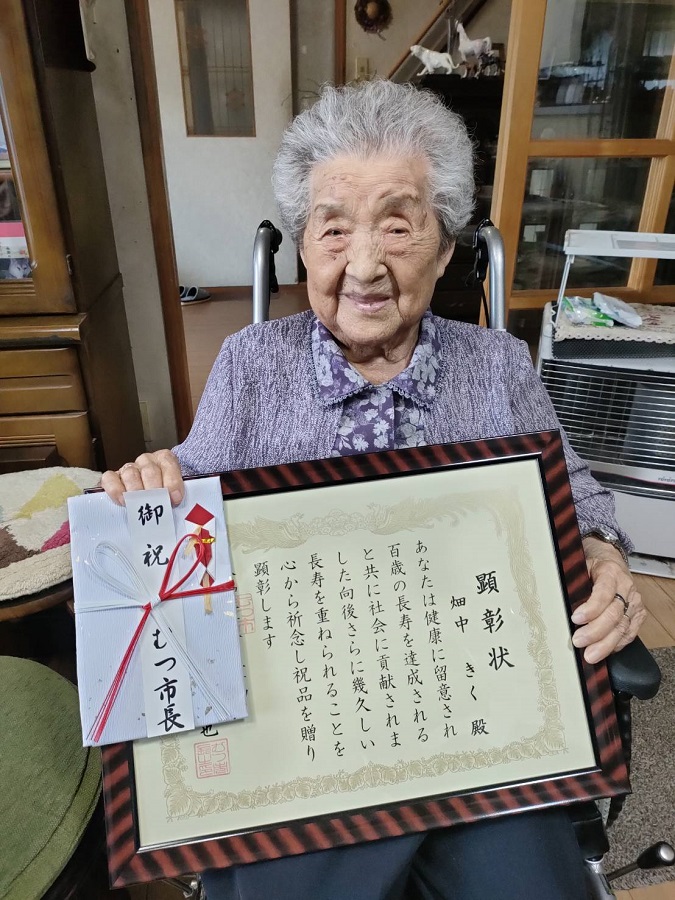 顕彰状
畑中 きく 殿
あなたは健康に留意され
百歳の長寿を達成される
と共に社会に貢献されま
した向後さらに幾久しい
長寿を重ねられることを
心から祈念し祝品を贈り
顕彰します
也
御祝
むつ市長